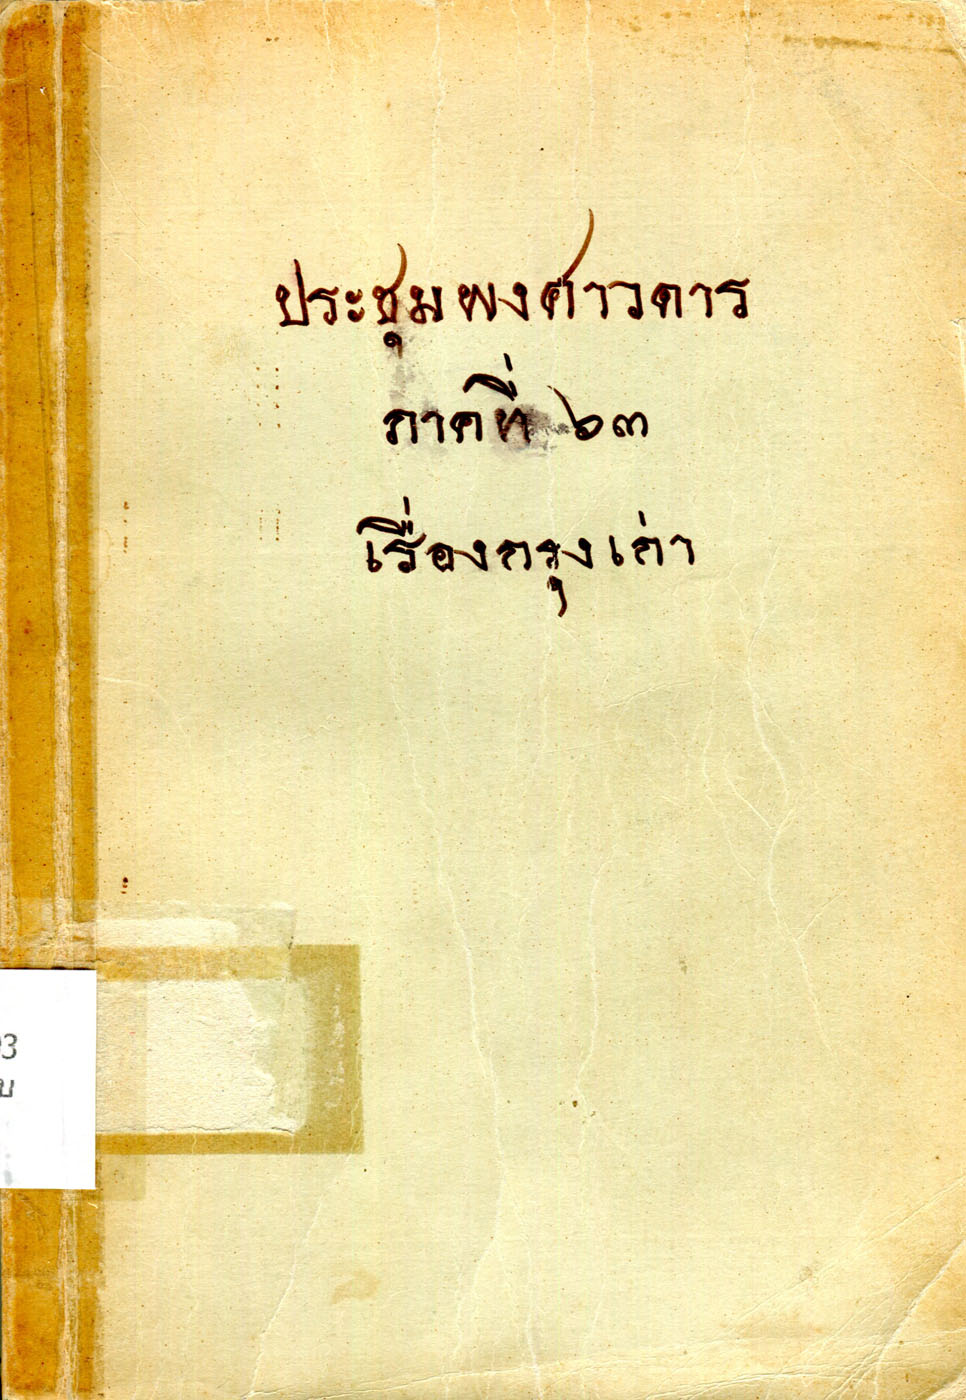 ประชุมพงศาวดาร
ภาคที่ ๖๓
เรื่องกรุงเก่า
93